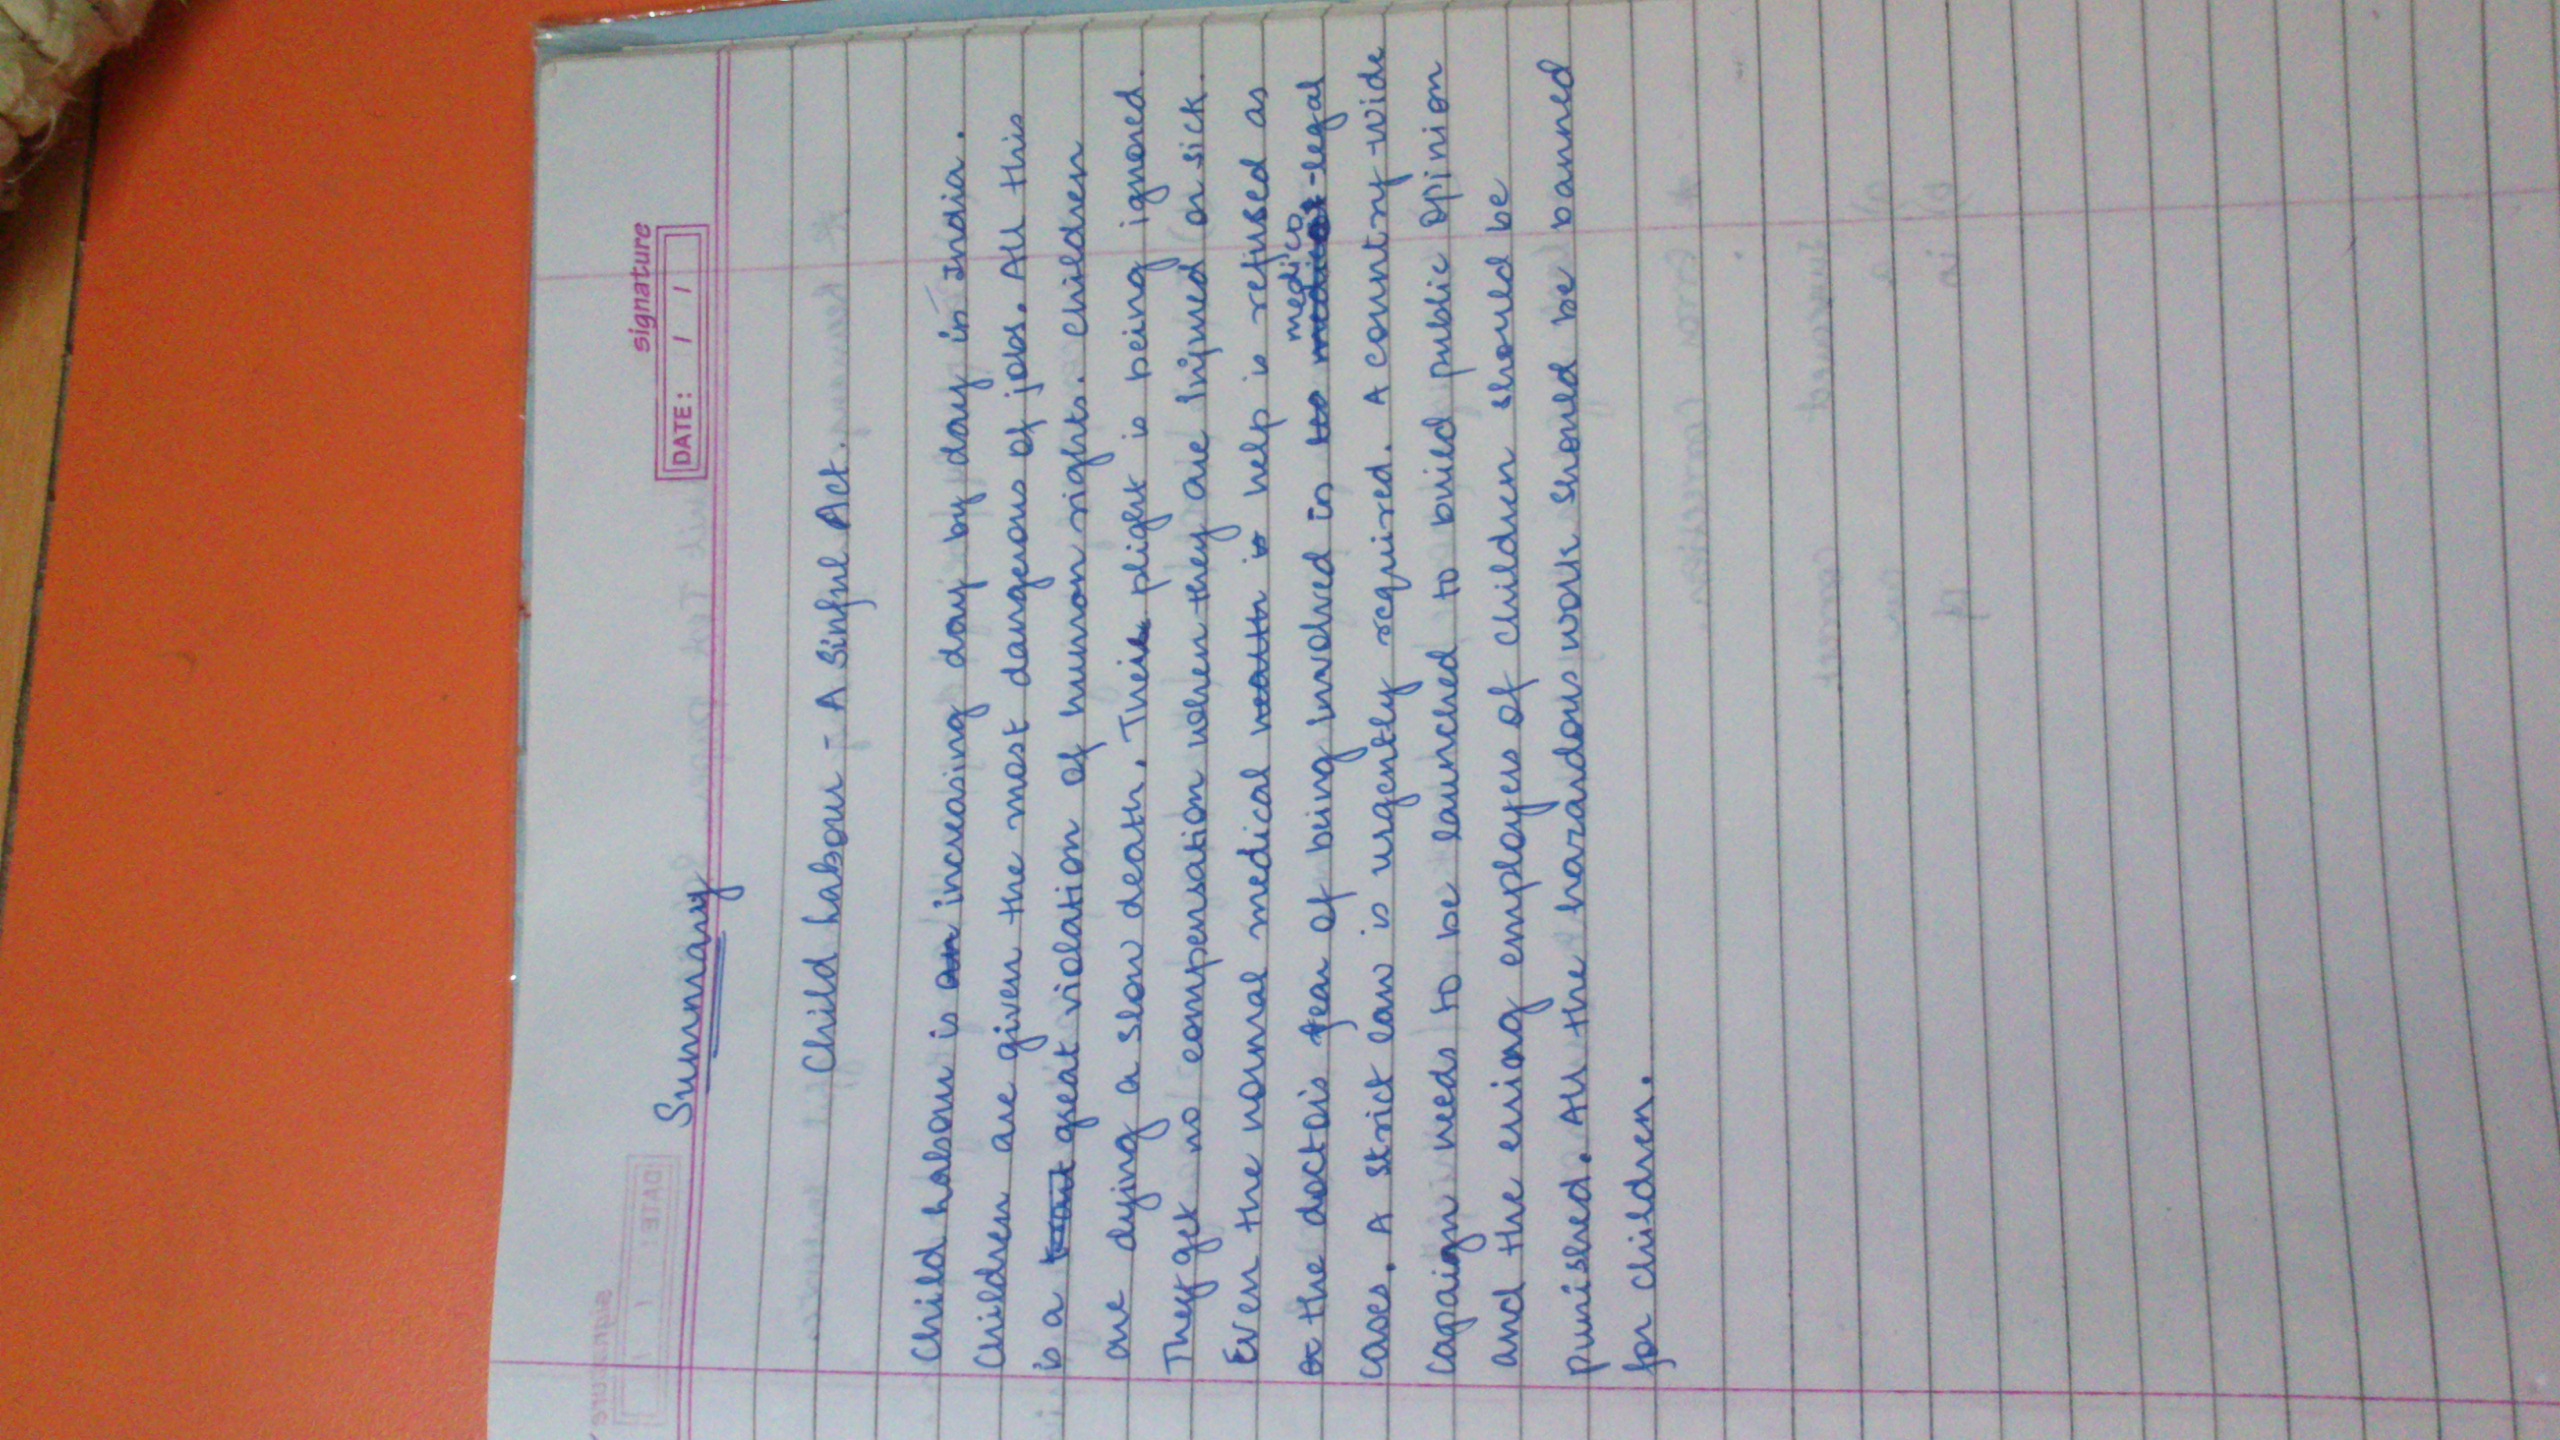 signature
DATE: / /
Summary
Child Labour - A Sinful Act.
Child Labour is an increasing day by day in India.
Children are given the most dangerous of jobs. All this
is a great violation of human rights. Children
are dying a slow death. Their plight is being ignored.
They get no compensation when they are Injured or sick.
Even the normal medical health is help is refused as
the doctors fear of being involved in medico-legal
cases. A strict law is urgently required. A country wide
capaign needs to be launched to build public opinion
and the erring employers of children should be
punished. All the hazardous work should be banned
for children.